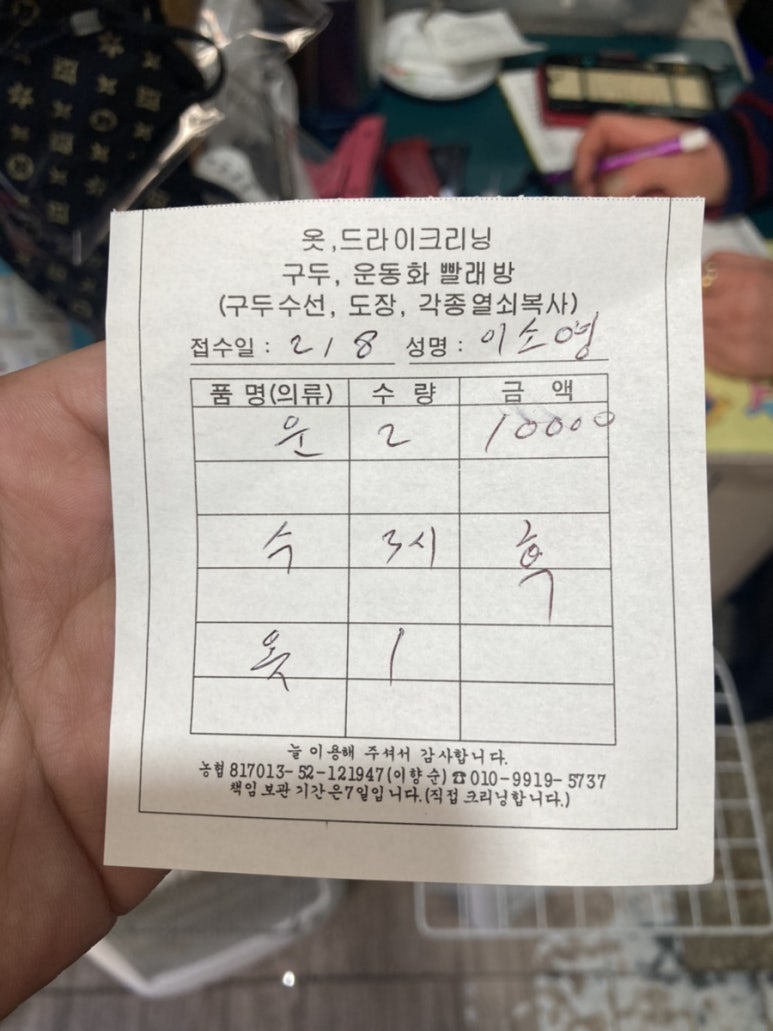 옷,드라이크리닝
구두, 운동화 빨래방
(구두수선, 도장, 각종열쇠복사)
접수일 : 2/8 성명 : 이소영
품 명(의류) 수 량 금 액
운 2 10000
수 3시 후
옷 1
늘 이용해 주셔서 감사합니다.
농협 817013-52-121947(이향순)☎010-9919-5737
책임 보관 기간은7일입니다.(직접 크리닝합니다.)